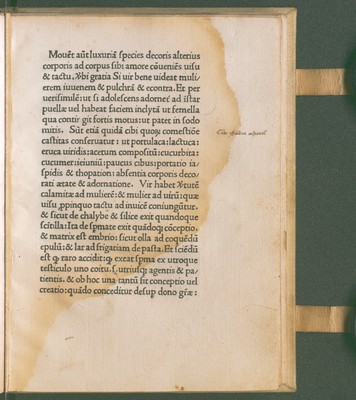 Mouēt aūt luxuriā species decoris alterius
corporis ad corpus sibi amore cōueniēs uisu
& tactu. Xbi gratia Si uir bene uideat muli
erem iuuenem & pulchrā & econtra. Et per
uerisimilē: ut si adolescens adornet̄ ad īstar
puellæ uel habeat faciem inclytā ut femella
qua contir git fortis motus: ut patet in sodo
mitis. Sūt etiā quidā cibi quoꝝ comestiōe
castitas conseruatur: ut portulaca: lactuca:
eruca uiridis: acetum compositū: cucurbita:
cucumer: ieiuniū: paucus cibus: portatio ia/
spidis & thopation: absentia corporis deco/
rati ætate & adornatione. Vir habet Xtutē
calamitæ ad mulierē: & mulier ad uirū: quæ
uisu ꝓpinquo tactu ad inuicē coniungūtur.
& sicut de chalybe & silice exit quandoque
scītilla: Ita de spmate exit quādoqꝫ cōceptio,
& matrix est embrio: sicut olla ad coquēdū
epulū: & lar ad frigatiam de pasta. Et sciēdū
est ꝙ raro accidit: ꝙ exeat spma ex utroque
testiculo uno coitu. s. utriusqꝫ agentis & pa/
tientis. & ob hoc una tantū fit conceptio uel
creatio: quādo conceditur desup dono gr̄æ: